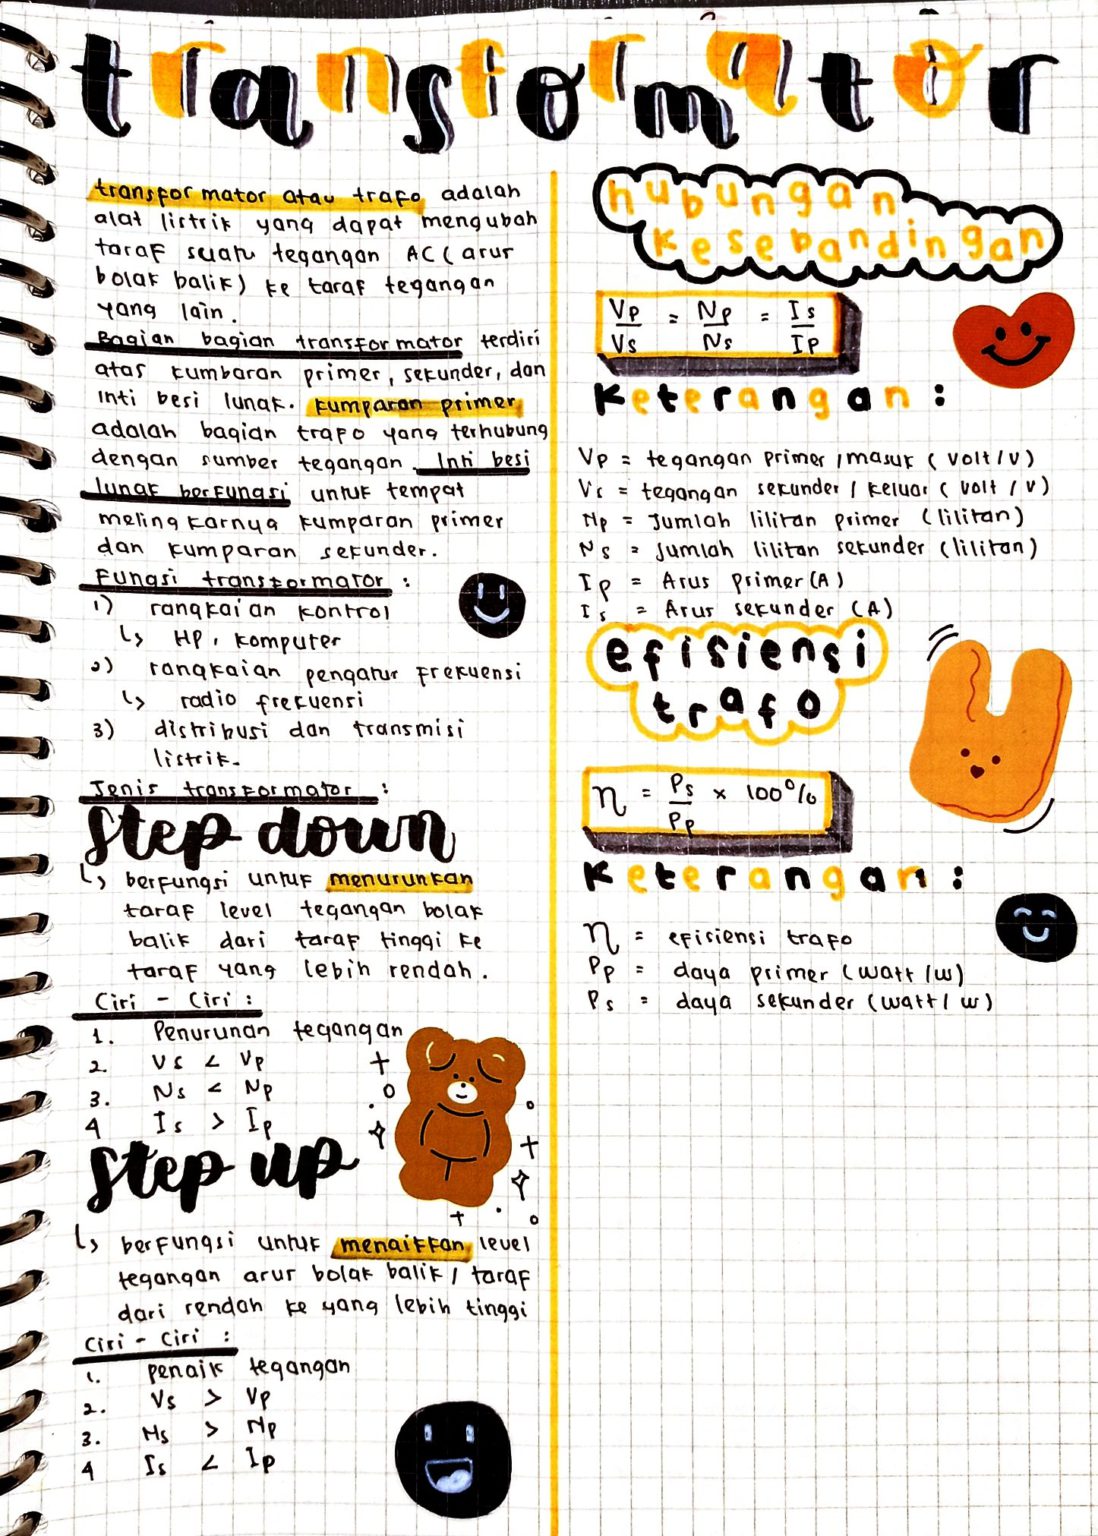 transformator
transformator atau trafo adalah
alat listrik yang dapat mengubah
taraf suatu tegangan AC (arus
bolak balik) ke taraf tegangan
yang lain.
Bagian bagian transformator terdiri
atas kumbaran primer, sekunder, dan
inti besi lunak. kumparan primer
adalah bagian trafo yang terhubung
dengan sumber tegangan. Inti besi
lunak berfungsi untuk tempat
melingkarnya kumparan primer
dan kumparan sekunder.
Fungsi transformator :
1) rangkaian kontrol
↳ HP, komputer
2) rangkaian pengatur frekuensi
↳ radio frekuensi
3) distribusi dan transmisi
listrik.
Jenis transformator :
Step down
↳ berfungsi untuk menurunkan
taraf level tegangan bolak
balik dari taraf tinggi ke
taraf yang lebih rendah.
Ciri - Ciri :
1. Penurunan tegangan
2. Vs < Vp
3. Ns < Np
4 Is > Ip
Step up
↳ berfungsi untuk menaikkan level
tegangan arus bolak balik / taraf
dari rendah ke yang lebih tinggi
Ciri - Ciri :
1. penaik tegangan
2. Vs > Vp
3. Ns > Np
4 Is < Ip
hubungan
kesebandingan
Vp/Vs = Np/Ns = Is/Ip
Keterangan :
Vp = tegangan primer /masuk (volt/v)
Vs = tegangan sekunder / keluar (volt / v)
Np = Jumlah lilitan primer (lilitan)
Ns = Jumlah lilitan sekunder (lilitan)
Ip = Arus primer (A)
Is = Arus sekunder (A)
efisiensi
trafo
η = Ps/Pp x 100%
Keterangan :
η = efisiensi trafo
Pp = daya primer (watt /w)
Ps = daya sekunder (watt/ w)